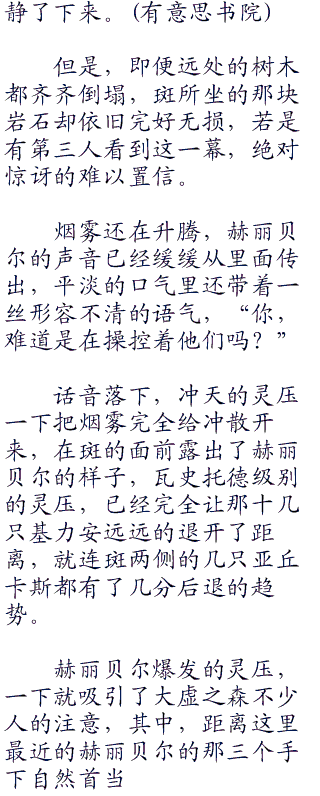 静了下来。（有意思书院）
但是，即便远处的树木
都齐齐倒塌，斑所坐的那块
岩石却依旧完好无损，若是
有第三人看到这一幕，绝对
惊讶的难以置信。
烟雾还在升腾，赫丽贝
尔的声音已经缓缓从里面传
出，平淡的口气里还带着一
丝形容不清的语气，“你，
难道是在操控着他们吗？”
话音落下，冲天的灵压
一下把烟雾完全给冲散开
来，在斑的面前露出了赫丽
贝尔的样子，瓦史托德级别
的灵压，已经完全让那十几
只基力安远远的退开了距
离，就连斑两侧的几只亚丘
卡斯都有了几分后退的趋
势。
赫丽贝尔爆发的灵压，
一下就吸引了大虚之森不少
人的注意，其中，距离这里
最近的赫丽贝尔的那三个手
下自然首当